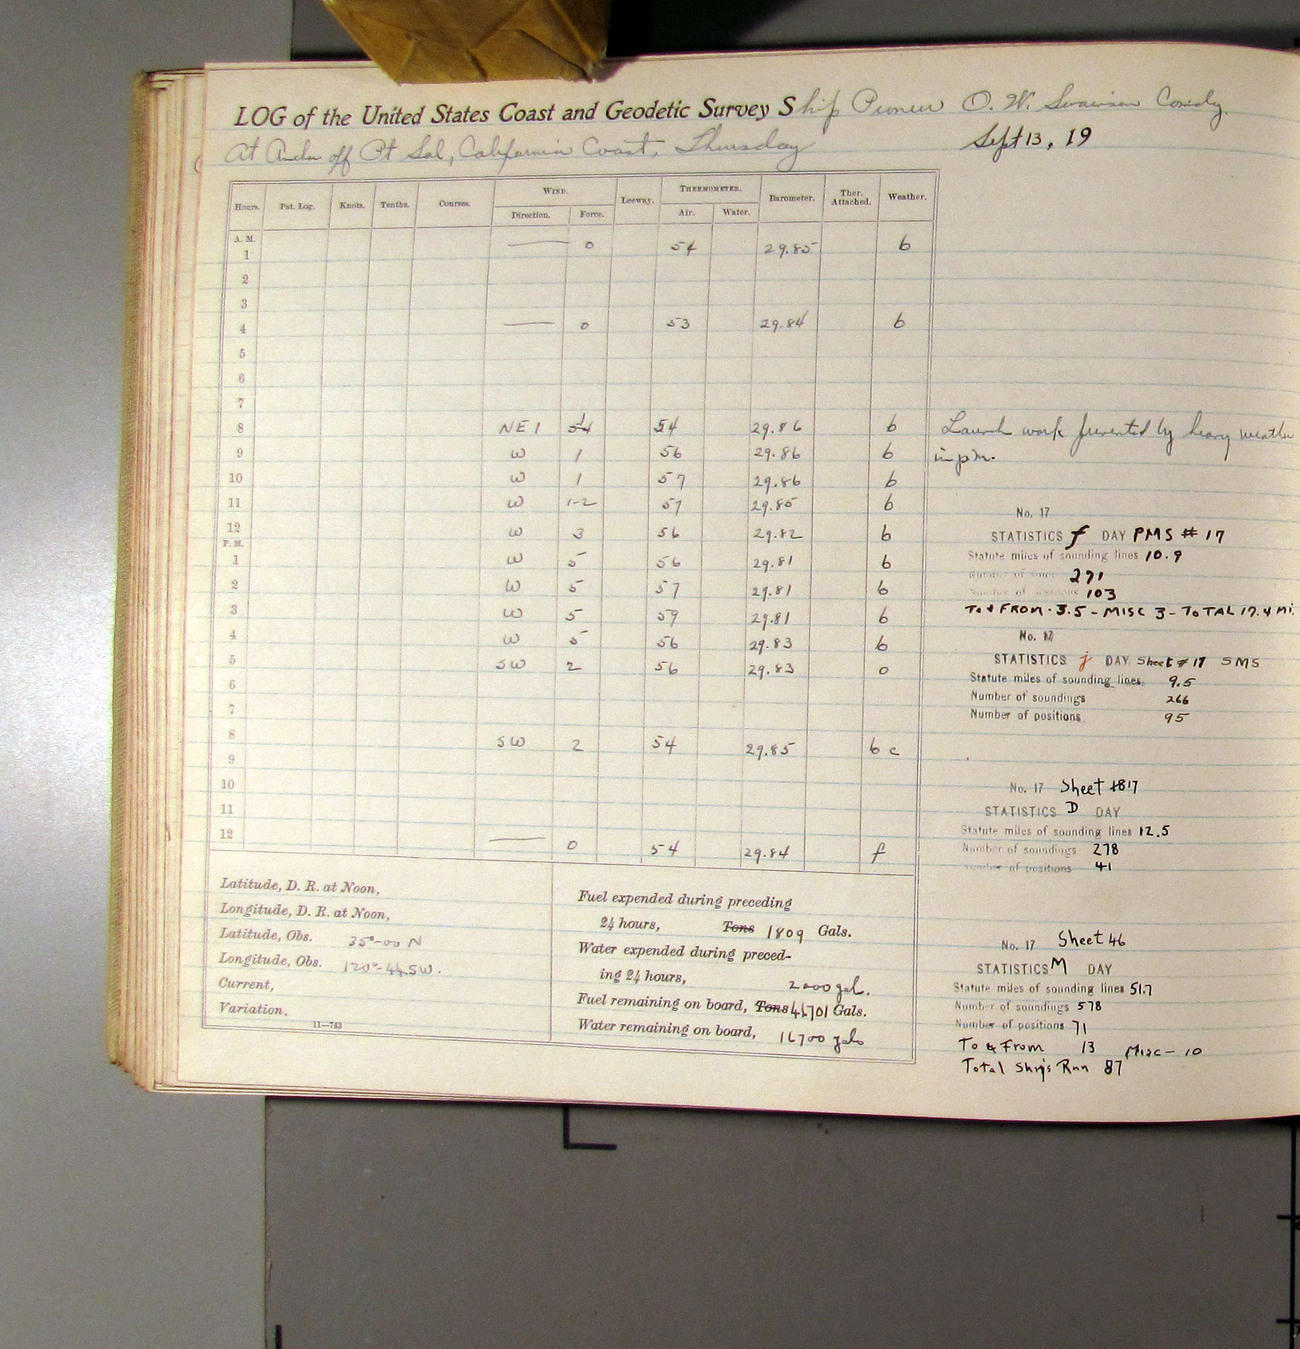 LOG of the United States Coast and Geodetic Survey Ship Pioneer O. W. Swainson Comdg.
At Anchor off Pt Sal, California Coast, Thursday Sept 13, 19
Hours. Pat. Log. Knots. Tenths. Courses. WIND. Leeway. THERMOMETER. Barometer. Ther. Attached. Weather.
Direction. Force. Air. Water.
A. M.
1 — 0 54 29.85 b
2
3
4 — 0 53 29.84 b
5
6
7
8 NE 1 54 29.86 b
9 W 1 56 29.86 b
10 W 1 57 29.86 b
11 W 1-2 57 29.85 b
12 W 3 56 29.82 b
P. M.
1 W 5 56 29.81 b
2 W 5 57 29.81 b
3 W 5 59 29.81 b
4 W 5 56 29.83 b
5 SW 2 56 29.83 o
6
7
8 SW 2 54 29.85 b c
9
10
11
12 — 0 54 29.84 f
Launch work prevented by heavy weather
in p.m.
No. 17
STATISTICS f DAY PMS # 17
Statute miles of sounding lines 10.9
271
103
To & FROM - 3.5 - MISC 3 - TOTAL 17.4 Mi.
No. 17
STATISTICS j DAY Sheet # 17 SMS
Statute miles of sounding lines 9.5
Number of soundings 266
Number of positions 95
No. 17 Sheet
STATISTICS D DAY
Statute miles of sounding lines 12.5
Number of soundings 278
Number of positions 41
No. 17 Sheet 46
STATISTICS M DAY
Statute miles of sounding lines 51.7
Number of soundings 578
Number of positions 71
To & From 13 Misc - 10
Total Ship's Run 87
Latitude, D. R. at Noon,
Longitude, D. R. at Noon,
Latitude, Obs. 35°-00 N
Longitude, Obs. 120°-44.5 W.
Current,
Variation,
11—783
Fuel expended during preceding
24 hours, Tons 1809 Gals.
Water expended during preced-
ing 24 hours, 2000 gal.
Fuel remaining on board, Tons Gals.
Water remaining on board, 16700 gals